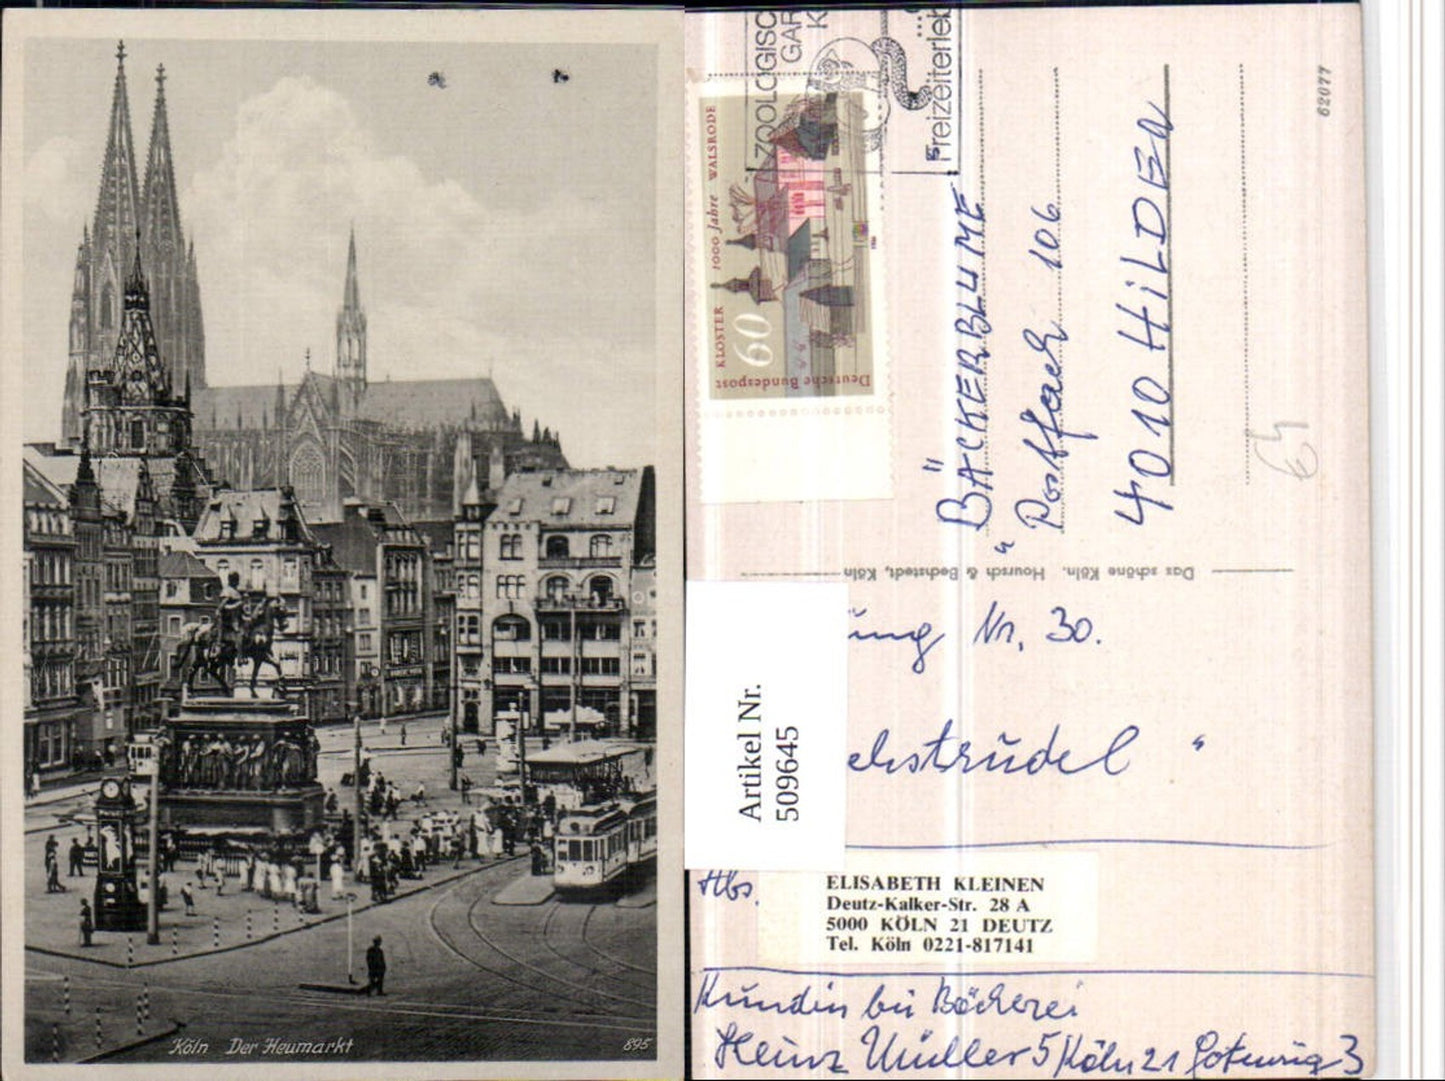 Köln Der Heumarkt
895
ZOOLOGISC
GAR
K
Freizeiterleb
KLOSTER 1000 Jahre WALSRODE
60
Deutsche Bundespost
62077
"BÄCKERBLUME"
Postfach 106
4010 HILDEN
64
Das schöne Köln. Hoursch & Bechstedt, Köln
ung Nr. 30.
chstrudel "
Artikel Nr.
509645
Abs.
ELISABETH KLEINEN
Deutz-Kalker-Str. 28 A
5000 KÖLN 21 DEUTZ
Tel. Köln 0221-817141
Kundin bei Bäckerei
Heinz Müller 5 Köln 21